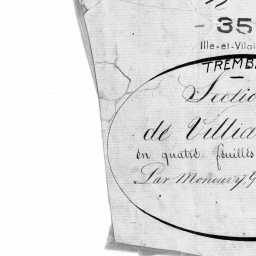 - 35
Ille-et-Vilai
TREMB
Sectio
de Villia
en quatre feuilles
Par Monsieur G